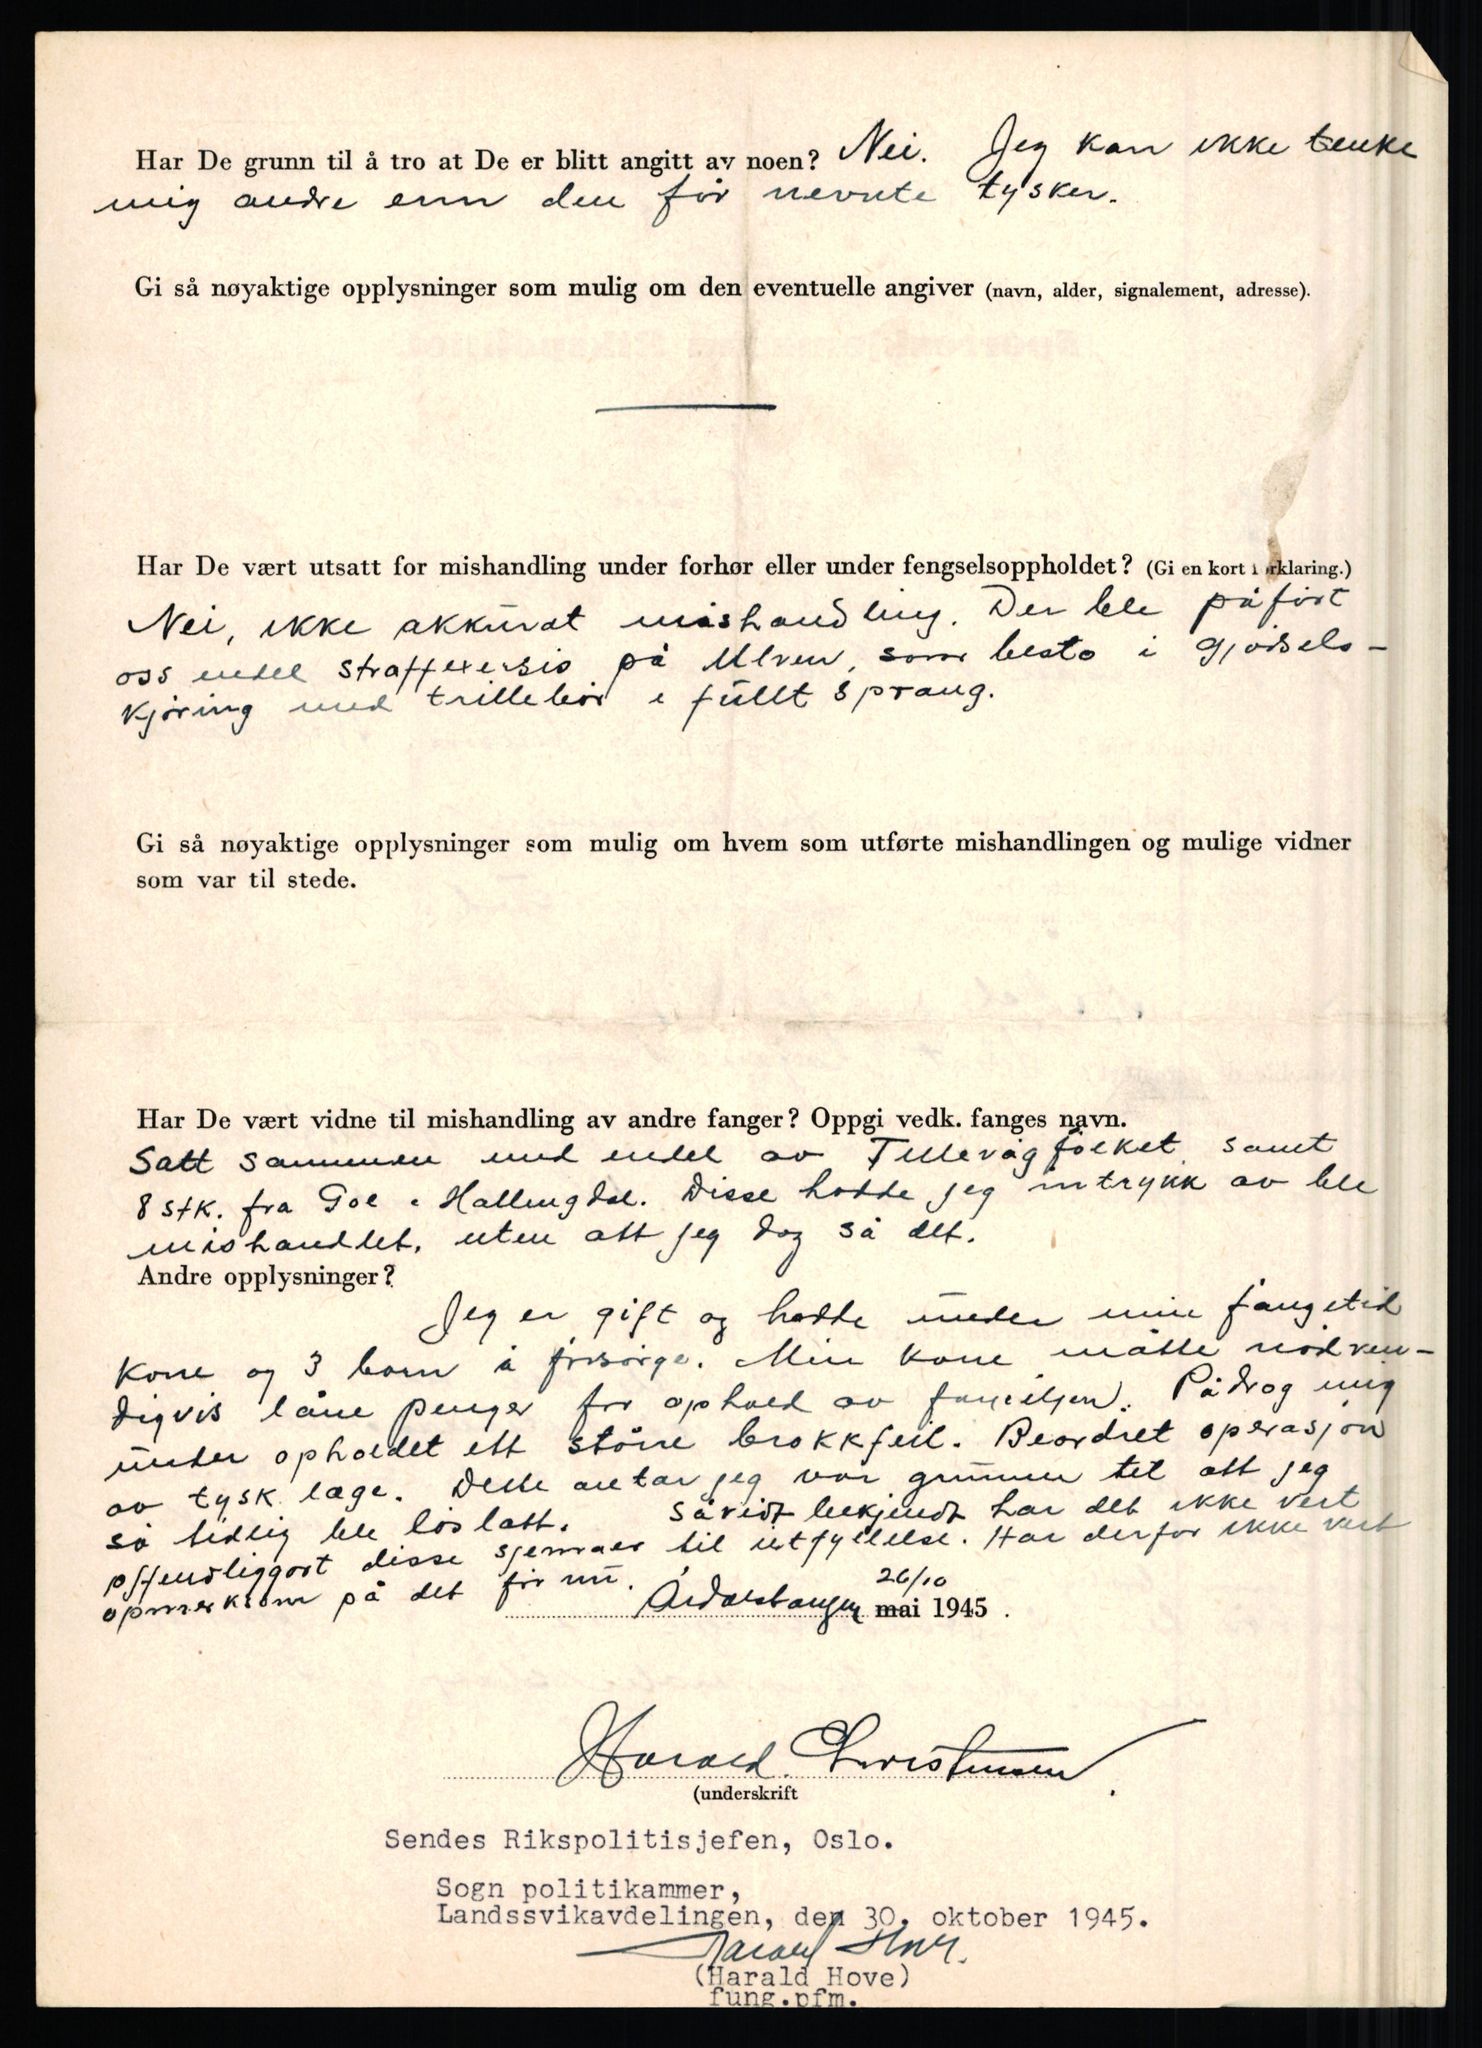 Har De grunn til å tro at De er blitt angitt av noen? Nei. Jeg kan ikke tenke
mig andre enn den før nevnte tysker.
Gi så nøyaktige opplysninger som mulig om den eventuelle angiver (navn, alder, signalement, adresse).
Har De vært utsatt for mishandling under forhør eller under fengselsoppholdet? (Gi en kort forklaring.)
Nei, ikke akkurat mishandling. Der ble påført
oss endel straffexersis på Ulven, som besto i gjødsels-
kjøring med trillebør i fullt sprang.
Gi så nøyaktige opplysninger som mulig om hvem som utførte mishandlingen og mulige vidner
som var til stede.
Har De vært vidne til mishandling av andre fanger? Oppgi vedk. fanges navn.
Satt sammen med endel av Tellevågfolket samt
8 stk. fra Gol i Hallingdal. Disse hadde jeg intrykk av ble
mishandlet, uten att jeg dog så det.
Andre opplysninger?
Jeg er gift og hadde under min fangetid
kone og 3 barn å forsørge. Min kone måtte nødven-
digvis låne penger for ophold av familjen. Pådrog mig
under opholdet ett større brokkfeil. Beordret operasjon
av tysk læge. Dette antar jeg var grunnen til att jeg
så tidlig ble løslatt. Såvidt bekjendt har det ikke vert
offendliggort disse sjemaer til utfyllelse. Har derfor ikke vert
opmerksom på det før nu. Årdalstangen 26/10 mai 1945.
Harald Christensen
(underskrift
Sendes Rikspolitisjefen, Oslo.
Sogn politikammer,
Landssvikavdelingen, den 30. oktober 1945.
Harald Hove.
(Harald Hove)
fung.pfm.